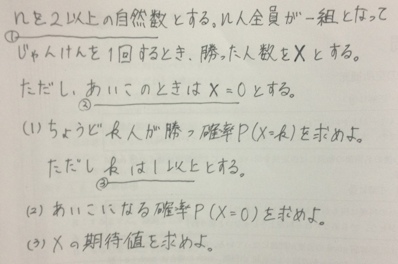 nを2以上の自然数とする。n人全員が一組となって
①
じゃんけんを1回するとき、勝った人数をXとする。
ただし、あいこのときはX=0とする。
②
(1) ちょうどk人が勝つ確率P(X=k)を求めよ。
ただしkは1以上とする。
③
(2) あいこになる確率P(X=0)を求めよ。
(3) Xの期待値を求めよ。